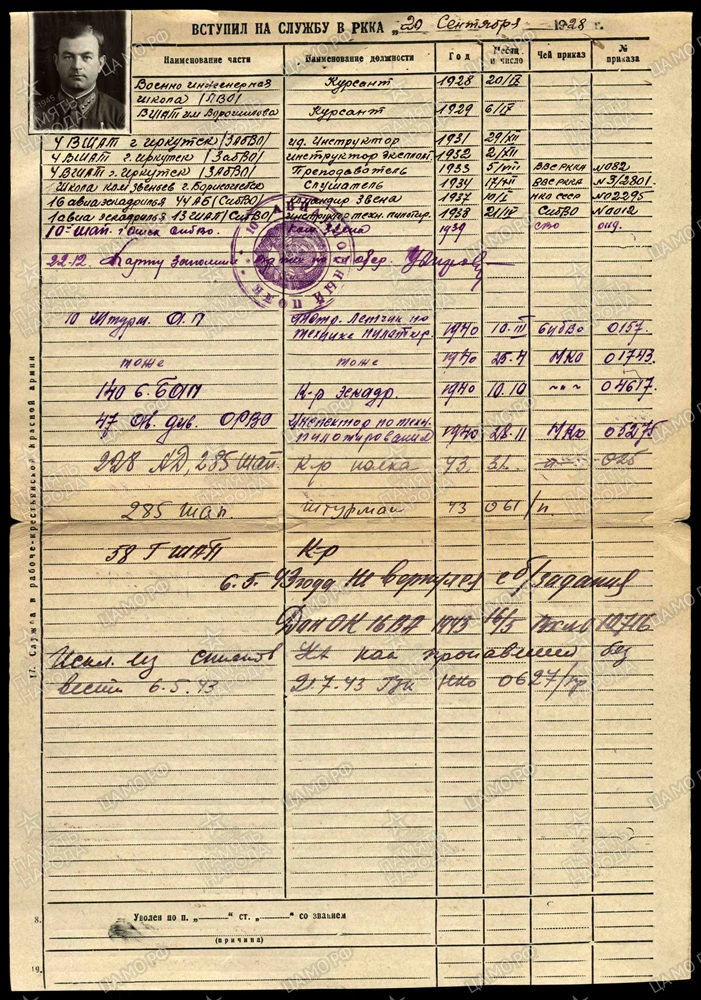 ВСТУПИЛ НА СЛУЖБУ В РККА „20 Сентября 1928 г.
Наименование части Наименование должности Год Месяц и число Чей приказ № приказа
Военно инженерная Курсант 1928 20/IX
школа /ПВО/
ВШАТ им Ворошилова Курсант 1929 6/IV
4 ВШАТ г Иркутск /ЗабВО/ ид. Инструктор 1931 29/XII
4 ВШАТ г. Иркутск /ЗабВО/ инструктор Эксплоат. 1932 2/XII
4 ВШАТ г. Иркутск /ЗабВО/ Преподаватель 1933 5/VIII ВВС РККА №082
Школа ком. звеньев г. Борисоглебск Слушатель 1934 ВВС РККА №3/2801.
16 авиаэскадрилья 44 АБ (СибВО) Командир Звена 1937 10/I НКО СССР №02295
1 авиа эскадрилья 13 ШАП (СибВО) инструктор техн. пилотир. 1938 21/IV СибВО №0012
10й шап. г Омск сибво. ком Звена 1939 СВО
22.12. Карту заполнил
10 Штурм. А.П Летчик по
технике пилотир. 1940 10.III СибВО 0157.
тоже тоже 1940 25.4 НКО 01743.
140 б. БАП К-р эскадр. 1940 10.10 -"- 04617.
47 див. ОРВО Инспектор по техн.
пилотирования 1940 28.11 НКО 05275
228 АД, 285 шап. К-р полка 43 025
285 шап. штурман 43 061/п.
58 Г ШАП К-р
6.5.43 года Не вернулся с б/задания
Дон ОК 16 ВА 1943 16/5 19716
Искл. из списков КА как пропавший без
вести 6.5.43 21.7.43 НКО 0627/пр
17. Служба в рабоче-крестьянской Красной армии
8. Уволен по п. „——“ ст. „——“ со званием
(причина)
19.
10 АВИАЦИОННЫЙ ПОЛК
ПАМЯТЬ НАРОДА
ЦАМО.РФ